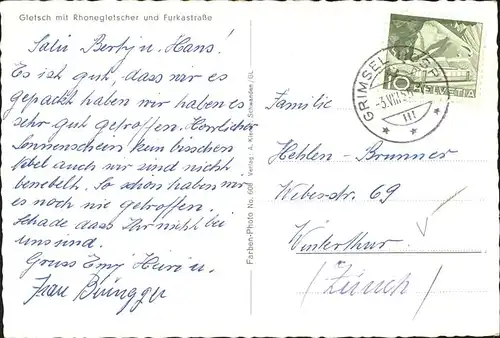 Gletsch mit Rhonegletscher und Furkastraße
Salü Bertj u. Hans!
Es ist gut, dass wir es
gepackt haben wir haben es
sehr gut getroffen. Herrlicher
Sonnenschein kein bisschen
Nebel auch wir sind nicht
benebelt. So schön haben wir
es noch nie getroffen.
Schade dass Ihr nicht bei
uns sind.
Gruss Emj Heiri u.
Frau
Farben-Photo No. 608 Verlag: A. Schwanden/GL
GRIMSEL HOSPIZ
-3.VIII.5
10 HELVETIA
Familie
Hehlen-Brunner
Weberstr. 69
Winterthur.
(Zürich)